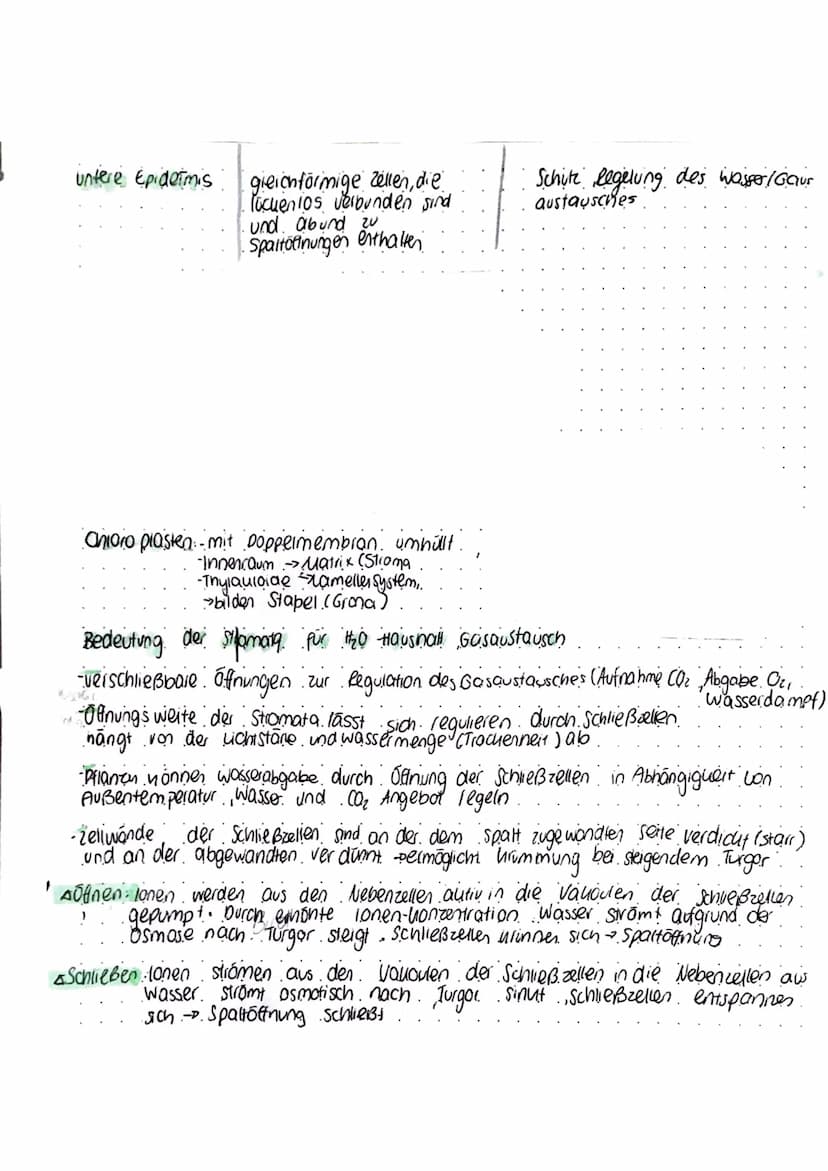 untere Epidermis
gleichförmige Zellen, die
lückenlos verbunden sind
und ab und zu
Spaltöffnungen enthalten
Schutz, Regelung des Wasser/Gas
austausches
Chloroplasten: - mit Doppelmembran umhüllt
- Innenraum → Matrix (Stroma
- Thylakoide → Lamellensystem,
→ bilden Stapel (Grana)
Bedeutung der Stomata für H₂O-Haushalt, Gasaustausch
- verschließbare Öffnungen zur Regulation des Gasaustausches (Aufnahme CO₂, Abgabe O₂,
Wasserdampf)
- Öffnungsweite der Stromata lässt sich regulieren durch Schließzellen
hängt von der Lichstärke und Wassermenge (Trockenheit) ab
- Pflanzen können Wasserabgabe durch Öffnung der Schließzellen in Abhängigkeit von
Außentemperatur, Wasser und CO₂ Angebot regeln
- Zellwände der Schließzellen sind an der dem Spalt zugewandten Seite verdickt (starr)
und an der abgewandten verdünnt → ermöglicht Krümmung bei steigendem Turgor
△ Öffnen: Ionen werden aus den Nebenzellen aktiv in die Vakuolen der Schließzellen
gepumpt. Durch erhöhte Ionen-Konzentration Wasser strömt aufgrund der
Osmose nach. Turgor steigt, Schließzellen krümmen sich → Spaltöffnung
△ Schließen: Ionen strömen aus den Vakuolen der Schließzellen in die Nebenzellen aus
Wasser strömt osmotisch nach, Turgor sinkt, Schließzellen entspannen
sich → Spaltöffnung schließt